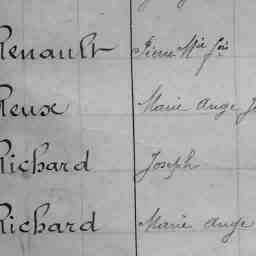 Renault Pierre Mie Jos
Reux Marie Ange J
Richard Joseph
Richard Marie Ange